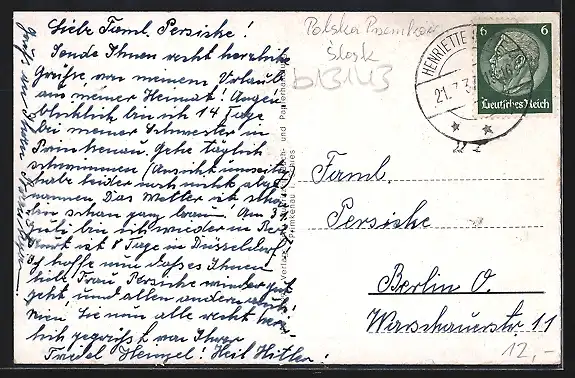 Liebe Faml. Persicke!
Sende Ihnen recht herzliche
Grüße von meinem Urlaub
aus meiner Heimat! Augen-
blicklich bin ich 14 Tage
bei meiner Schwester in
Primkenau. Gehe täglich
schwimmen (Ansicht umseitig)
habe leider noch nicht abge-
nommen. Das Wetter ist schön
bin schon ganz braun! Am 3
Juli bin ich wieder in
ist 8 Tage in Düsseldorf
hoffe nun daß es Ihnen
liebe Frau Persicke wieder gut
geht und allen anderen auch!
Seien Sie nun alle recht herz-
lich gegrüßt von Ihrer
Friedel Hempel! Heil Hitler!
Polska Primkenau
Śląsk
b13143
HENRIETTE
21.7.3
6 6
Deutsches Reich
und Papierhandlung
Primkenau
Faml.
Persicke
Berlin O.
Warschauerstr. 11
12,-